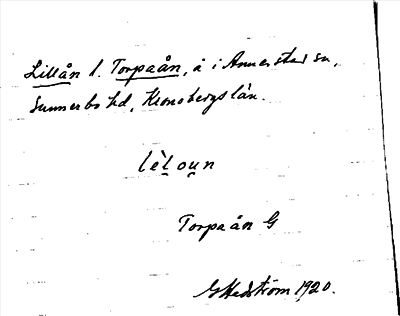 Lillån l. Torpaån, å i Annerstad sn,
Sunnerbo hd, Kronobergs län.
lèl̯ou̯n
Torpaån G
G Hedström 1920.